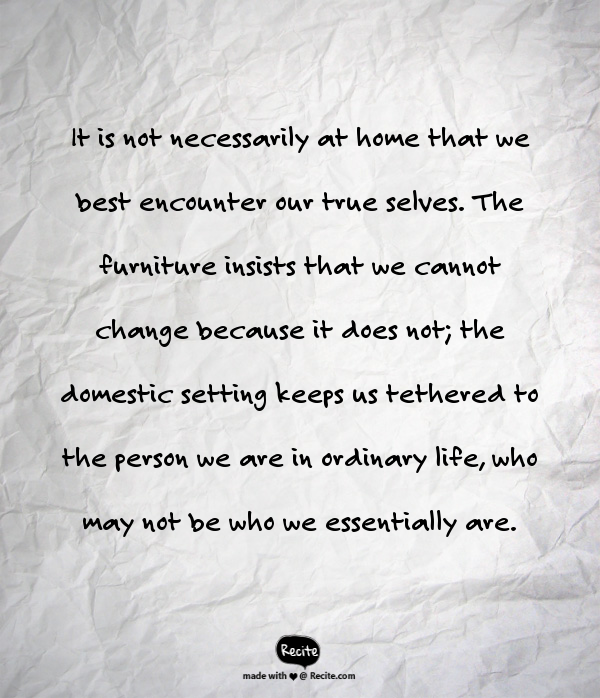 It is not necessarily at home that we
best encounter our true selves. The
furniture insists that we cannot
change because it does not; the
domestic setting keeps us tethered to
the person we are in ordinary life, who
may not be who we essentially are.
Recite
made with ♥ @ Recite.com